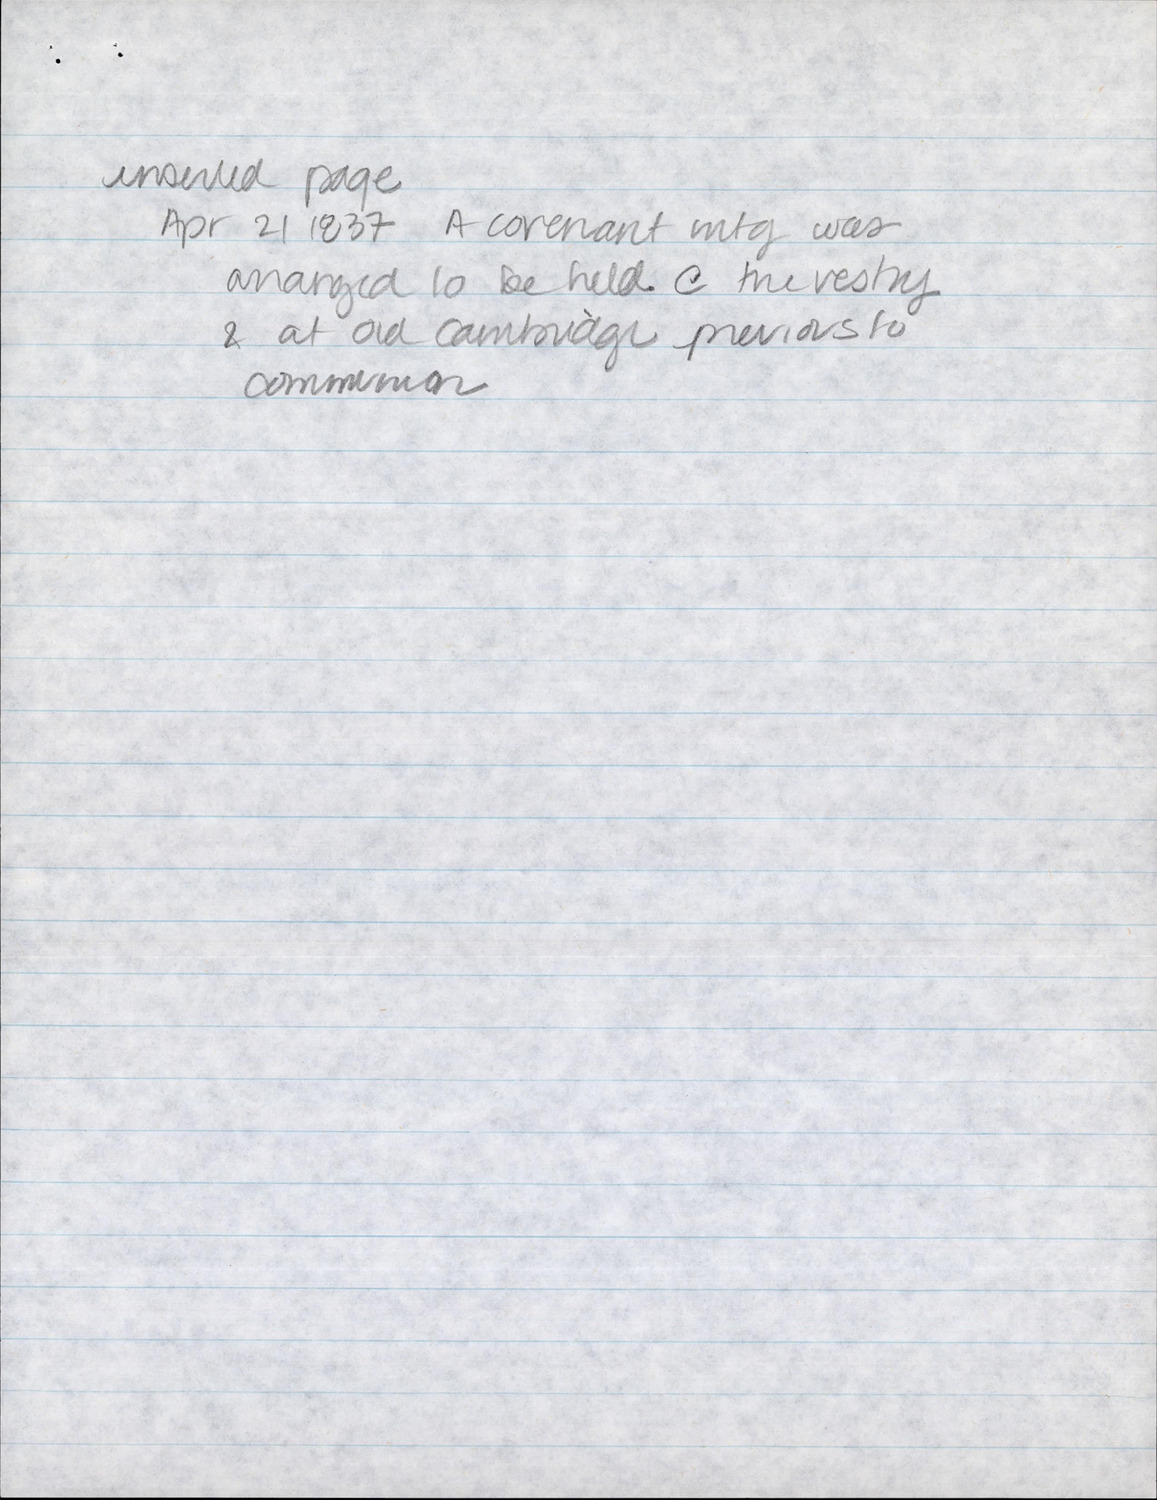 inserted page
Apr 21 1837 A covenant mtg was
arranged to be held @ the vestry
& at old cambridge previous to
communion